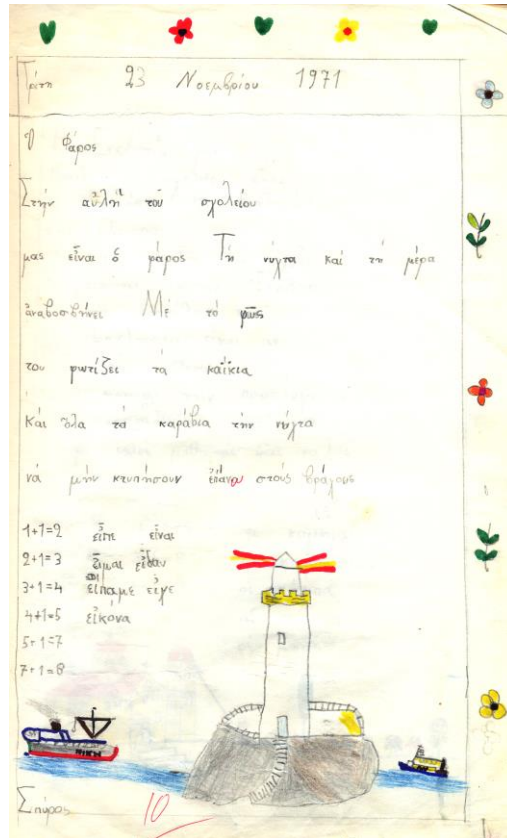 Τρίτη 23 Νοεμβρίου 1971
Ὁ Φάρος
Στήν αὐλή τοῦ σχολείου
μας εἶναι ὁ φάρος Τή νύχτα καί τή μέρα
ἀναβοσβήνει Μέ τό φῶς
του φωτίζει τά καΐκια
Καί ὅλα τά καράβια τήν νύχτα
νά μήν κτυπήσουν ἐπάνω στούς βράχους
1+1=2 εἶπε εἶναι
2+1=3 εἶμαι εἶδαν
3+1=4 εἴπαμε εἶχε
4+1=5 εἰκόνα
5+1=7
7+1=8
ΝΙΚΗ
Σπύρος 10